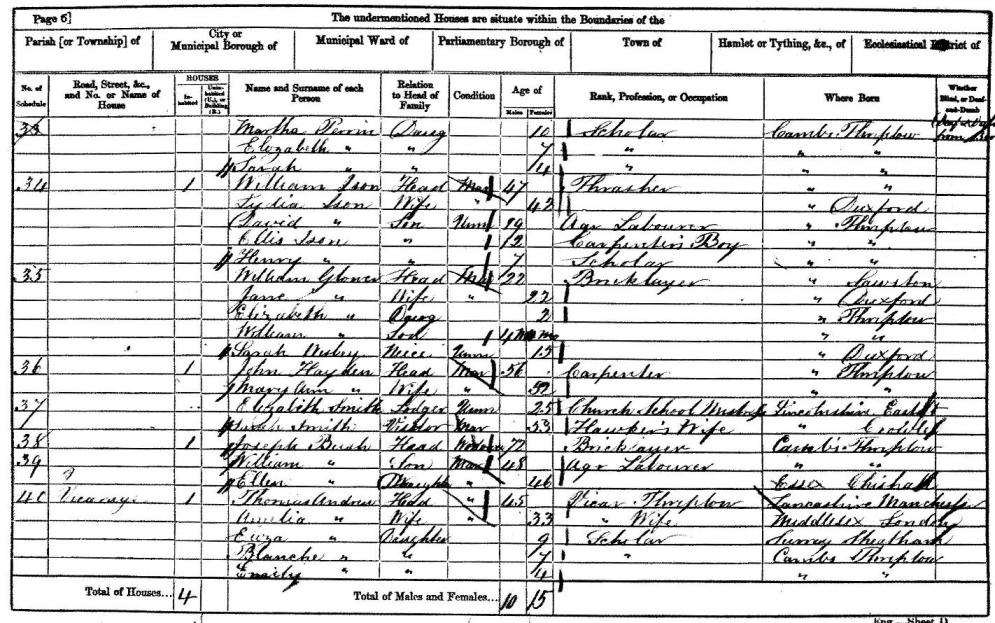 Page 6] The undermentioned Houses are situate within the Boundaries of the
Parish [or Township] of City or Municipal Borough of Municipal Ward of Parliamentary Borough of Town of Hamlet or Tything, &c., of Ecclesiastical District of
No. of Schedule Road, Street, &c., and No. or Name of House HOUSES Inhabited Uninhabited (U.), or Building (B.) Name and Surname of each Person Relation to Head of Family Condition Age of Males Females Rank, Profession, or Occupation Where Born Whether Blind, or Deaf-and-Dumb
33 Martha Perrin Daug 10 Scholar Cambs Thriplow from Birth
Elizabeth " " 7 " " "
Sarah " " 4 " "
34 1 William Ison Head Mar 47 Thrasher " "
Lydia Ison Wife " 42 " Duxford
David " Son Unm 19 Agr Labourer " Thriplow
Ellis Ison " 12 Carpenter's Boy " "
Henry " " 7 Scholar " "
35 1 William Glover Head Mar 22 Bricklayer " Sawston
Jane " Wife " 22 " Duxford
Elizabeth " Daug 2 " Thriplow
William " Son 4 Mo " "
Sarah Wisbey Niece Unm 15 " Duxford
36 1 John Hayden Head Mar 56 Carpenter " Thriplow
Mary Ann " Wife " 52 " "
37 Elizabeth Smith Lodger Unm 25 Church School Mistress Lincolnshire
Smith Visitor Mar 53 Hawker's Wife "
38 1 Joseph Bush Head Widower 72 Bricklayer Cambs Thriplow
39 William " Son Mar 48 Agr Labourer " "
Ellen " Daughter " 46 Essex Chishall
40 Vicarage 1 Thomas Andrew Head " 45 Vicar Thriplow Lancashire Manchester
Amelia " Wife " 33 " Wife Middlesex London
Eliza " Daughter 9 Scholar Surrey
Blanche " " 7 " Cambs Thriplow
Emily " " 4 " "
Total of Houses... 4 Total of Males and Females... 10 15
Eng.—Sheet D